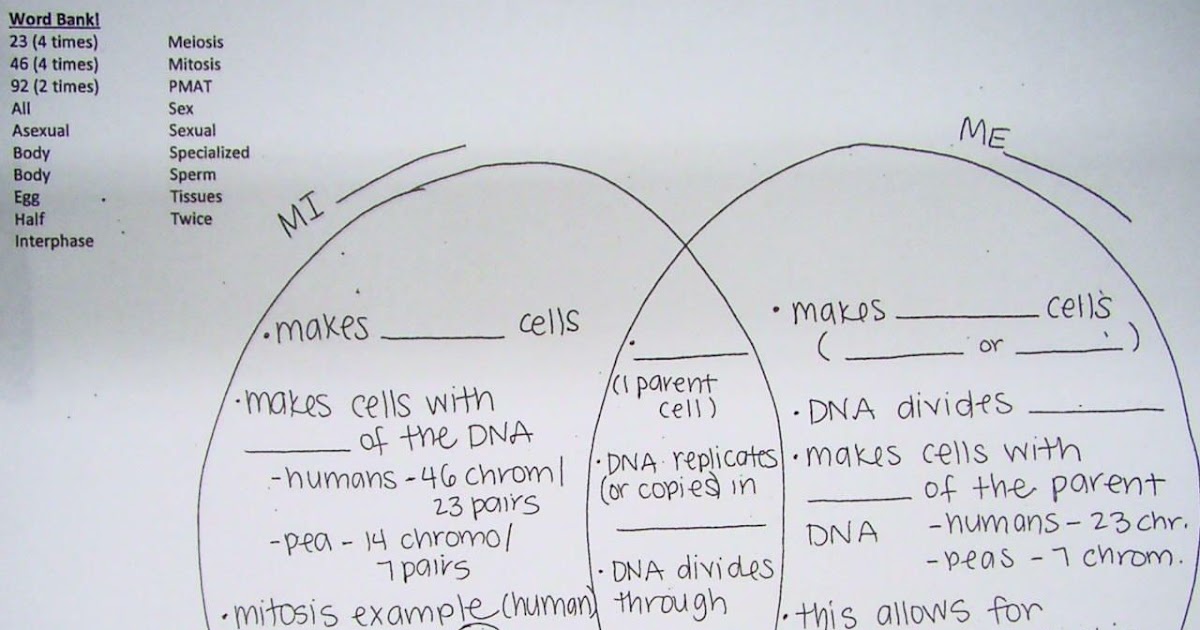 Word Bank!
23 (4 times)
46 (4 times)
92 (2 times)
All
Asexual
Body
Body
Egg
Half
Interphase
Meiosis
Mitosis
PMAT
Sex
Sexual
Specialized
Sperm
Tissues
Twice
MI
ME
• makes ________ cells
• makes cells with
________ of the DNA
- humans - 46 chrom/
23 pairs
- pea - 14 chromo/
7 pairs
• mitosis example (human)
• ________
(1 parent
cell)
• DNA replicates
(or copies) in
________
• DNA divides
through
• makes ________ cells
( ________ or ________ )
• DNA divides ________
• makes cells with
________ of the parent
DNA - humans - 23 chr.
- peas - 7 chrom.
• this allows for